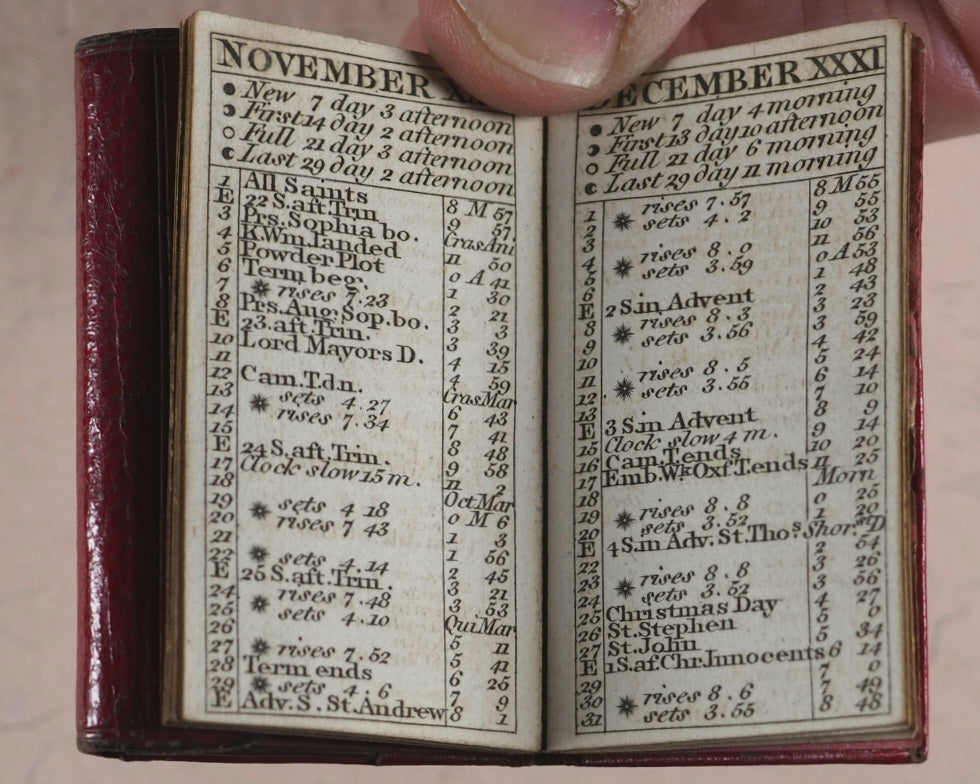 NOVEMBER
New 7 day 3 afternoon
First 14 day 2 afternoon
Full 21 day 3 afternoon
Last 29 day 2 afternoon
1 All Saints 8 M 57
E 22 S.aft Trin 9 57
3 Prs.Sophia bo. Cras Ani
4 K.Wm.landed 11 50
5 Powder Plot 0 A 41
6 Term beg. 1 30
7 rises 7.23 2 21
8 Prs.Aug:Sop.bo. 3 3
E 23.aft.Trin. 3 39
10 Lord Mayors D. 4 15
11 4 59
12 Cam.T.dn. Cras.Mar
13 sets 4.27 6 43
14 rises 7.34 7 41
15 8 48
E 24 S.aft.Trin. 9 58
17 Clock slow 15 m. 11 2
18 Oct Mar
19 sets 4 18 0 M 6
20 rises 7 43 1 3
21 1 56
22 sets 4.14 2 45
E 25 S.aft.Trin. 3 21
24 rises 7.48 3 53
25 sets 4.10 Qui Mar
26 5 11
27 rises 7.52 5 41
28 Term ends 6 25
29 sets 4.6 7 9
E Adv.S. St.Andrew 8 1
DECEMBER XXXI
New 7 day 4 morning
First 13 day 10 afternoon
Full 21 day 6 morning
Last 29 day 11 morning
1 rises 7.57 8 M 55
2 sets 4.2 9 55
3 10 53
4 rises 8.0 11 56
5 sets 3.59 0 A 53
6 1 48
E 2 S.in Advent 2 43
8 rises 8.3 3 23
9 sets 3.56 3 59
10 4 42
11 rises 8.5 5 24
12 sets 3.55 6 14
13 7 10
E 3 S.in Advent 8 9
15 Clock slow 4 m. 9 14
16 Cam.T.ends 10 20
17 Emb.Wk Oxf.T.ends 11 25
18 Morn
19 rises 8.8 0 25
20 sets 3.52 1 20
E 4 S.in Adv. St.Thos. Shor.st D
22 2 54
23 rises 8.8 3 26
24 sets 3.52 3 56
25 Christmas Day 4 27
26 St.Stephen 5 0
27 St.John 5 34
E 1S.af.Chr.Innocents 6 14
29 7 0
30 rises 8.6 7 49
31 sets 3.55 8 48